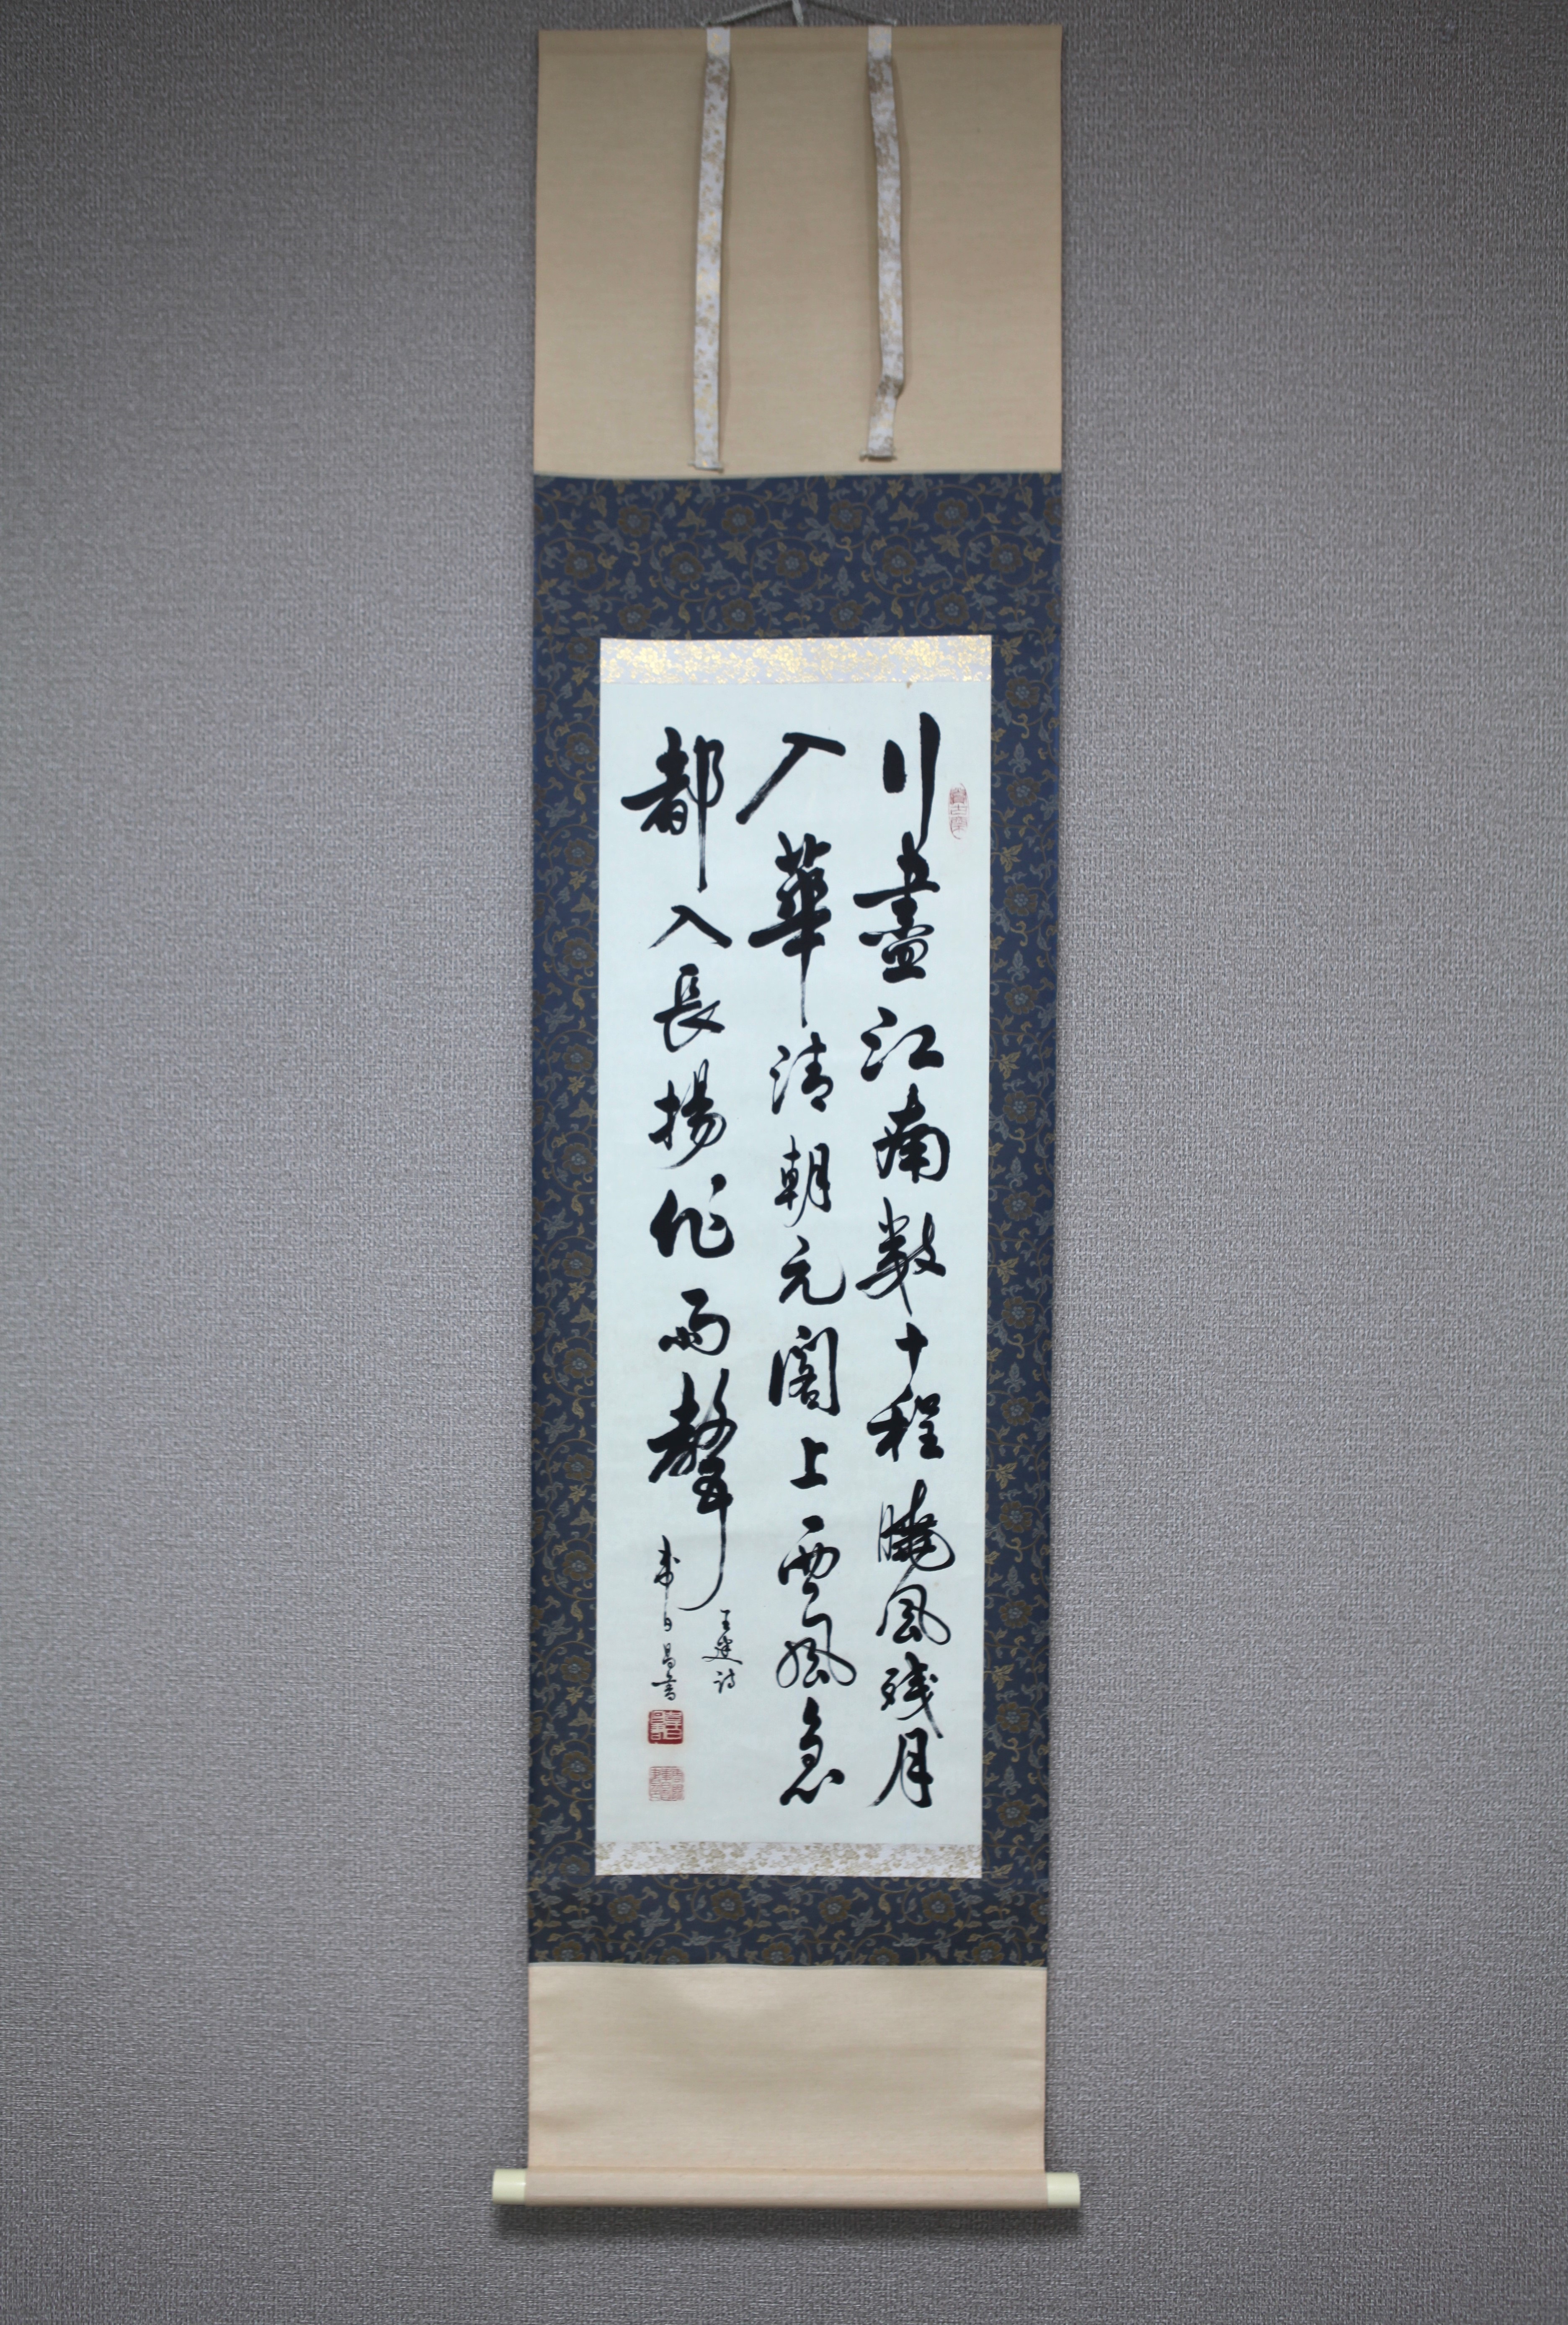 行盡江南數十程曉風殘月
入華清朝元閣上西風急
都入長楊作雨聲
王建詩
書